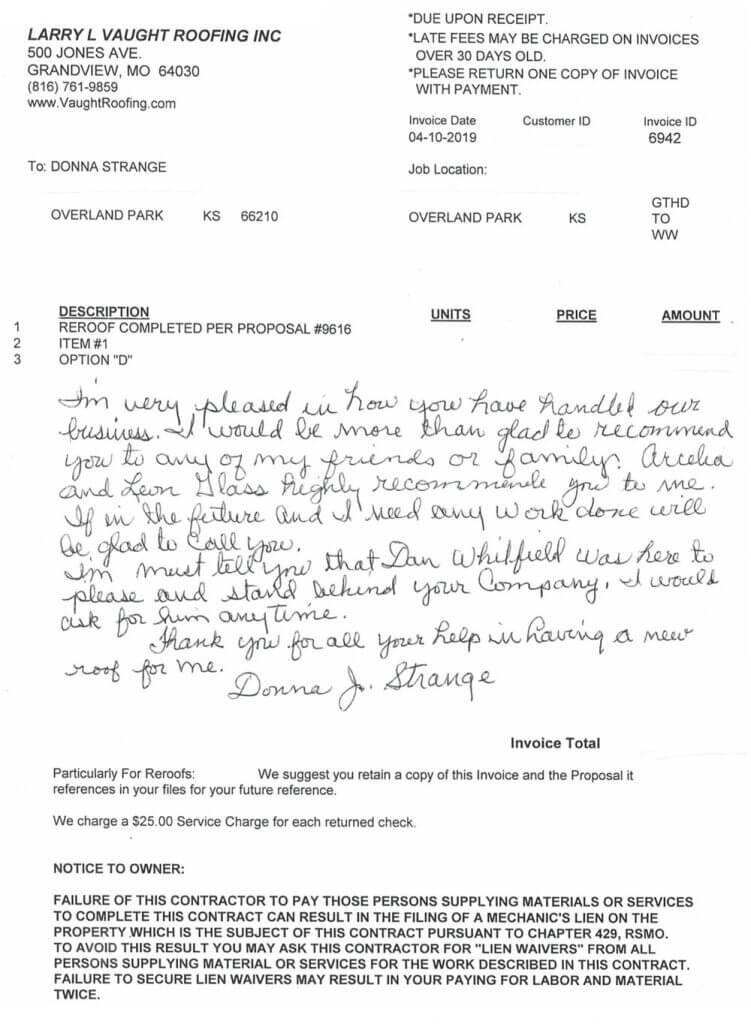 LARRY L VAUGHT ROOFING INC
500 JONES AVE.
GRANDVIEW, MO 64030
(816) 761-9859
www.VaughtRoofing.com
*DUE UPON RECEIPT.
*LATE FEES MAY BE CHARGED ON INVOICES
OVER 30 DAYS OLD.
*PLEASE RETURN ONE COPY OF INVOICE
WITH PAYMENT.
Invoice Date Customer ID Invoice ID
04-10-2019 6942
To: DONNA STRANGE
Job Location:
OVERLAND PARK KS 66210
OVERLAND PARK KS
GTHD
TO
WW
DESCRIPTION UNITS PRICE AMOUNT
1 REROOF COMPLETED PER PROPOSAL #9616
2 ITEM #1
3 OPTION "D"
I'm very pleased in how you have handled our
business. I would be more than glad to recommend
you to any of my friends or family. Arcelia
and Leon Glass highly recommende you to me.
If in the future and I need any work done will
be glad to Call you.
I'm must tell you that Dan Whitfield was here to
please and stand behind your Company. I would
ask for him anytime.
Thank you for all your help in having a new
roof for me.
Donna J. Strange
Invoice Total
Particularly For Reroofs: We suggest you retain a copy of this Invoice and the Proposal it
references in your files for your future reference.
We charge a $25.00 Service Charge for each returned check.
NOTICE TO OWNER:
FAILURE OF THIS CONTRACTOR TO PAY THOSE PERSONS SUPPLYING MATERIALS OR SERVICES
TO COMPLETE THIS CONTRACT CAN RESULT IN THE FILING OF A MECHANIC'S LIEN ON THE
PROPERTY WHICH IS THE SUBJECT OF THIS CONTRACT PURSUANT TO CHAPTER 429, RSMO.
TO AVOID THIS RESULT YOU MAY ASK THIS CONTRACTOR FOR "LIEN WAIVERS" FROM ALL
PERSONS SUPPLYING MATERIAL OR SERVICES FOR THE WORK DESCRIBED IN THIS CONTRACT.
FAILURE TO SECURE LIEN WAIVERS MAY RESULT IN YOUR PAYING FOR LABOR AND MATERIAL
TWICE.